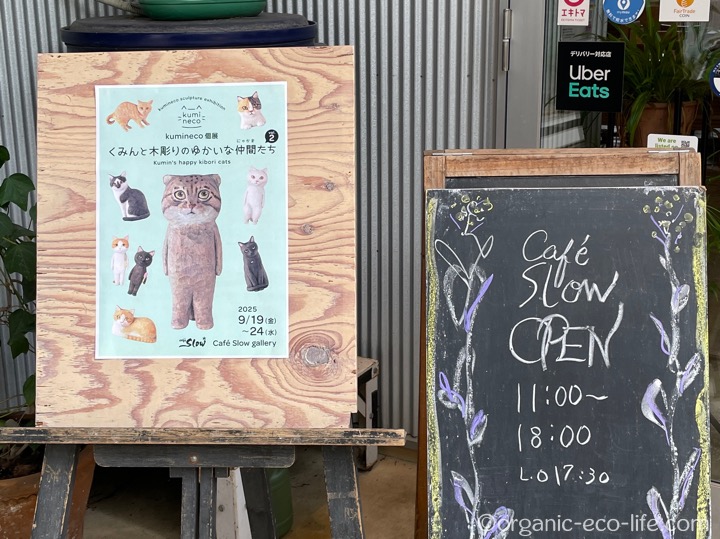 kumineco sculpture exhibition
kumi
neco
kumineco 個展
vol 2
にゃかま
くみんと木彫りのゆかいな仲間たち
Kumin's happy kibori cats
2025
9/19(金)
~24(水)
Slow
Café Slow gallery
エキトマ
FAIRTRADE
COIN
デリバリー対応店
Uber
Eats
We are
Café
SLOW
OPEN
11:00~
18:00
L.O 17:30
©organic-eco-life.com